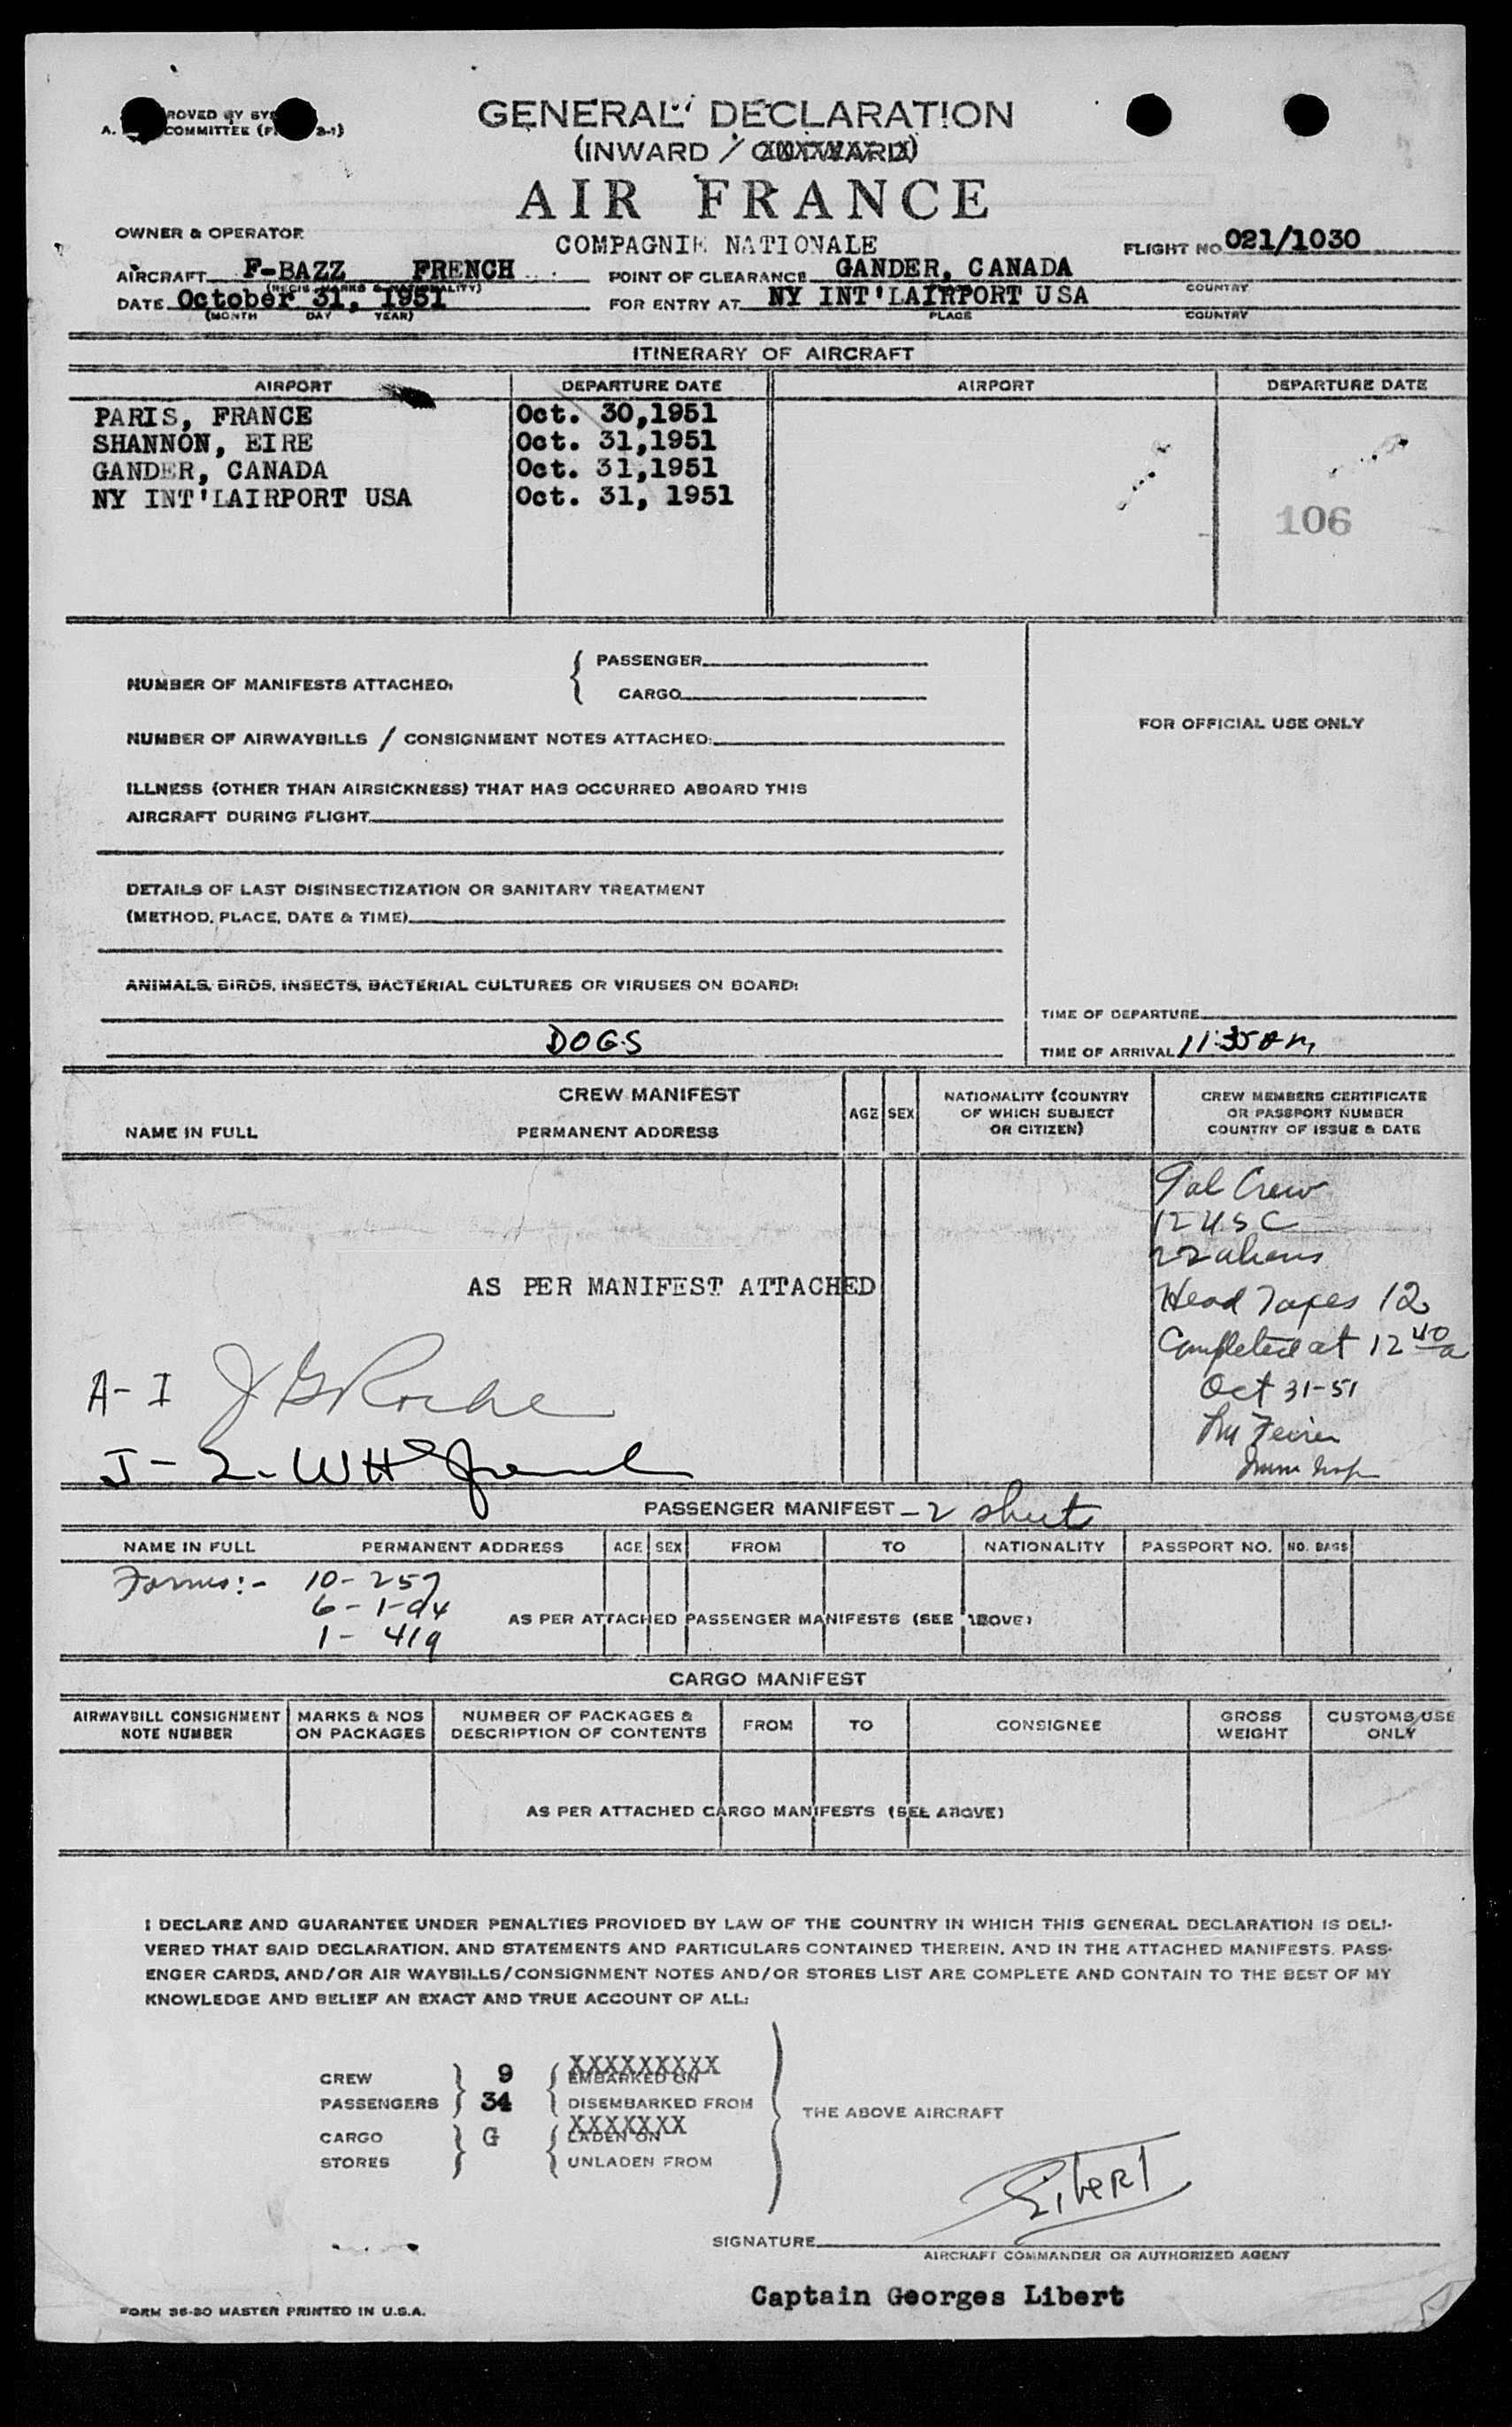 GENERAL DECLARATION
(INWARD /
AIR FRANCE
COMPAGNIE NATIONALE
OWNER & OPERATOR
FLIGHT NO 021/1030
AIRCRAFT F-BAZZ FRENCH
POINT OF CLEARANCE GANDER, CANADA
COUNTRY
DATE October 31, 1951
(MONTH DAY YEAR)
FOR ENTRY AT NY INT'LAIRPORT USA
PLACE COUNTRY
ITINERARY OF AIRCRAFT
AIRPORT DEPARTURE DATE AIRPORT DEPARTURE DATE
PARIS, FRANCE Oct. 30,1951
SHANNON, EIRE Oct. 31,1951
GANDER, CANADA Oct. 31,1951
NY INT'LAIRPORT USA Oct. 31, 1951
106
NUMBER OF MANIFESTS ATTACHED:
PASSENGER
CARGO
NUMBER OF AIRWAYBILLS / CONSIGNMENT NOTES ATTACHED:
FOR OFFICIAL USE ONLY
ILLNESS (OTHER THAN AIRSICKNESS) THAT HAS OCCURRED ABOARD THIS
AIRCRAFT DURING FLIGHT
DETAILS OF LAST DISINSECTIZATION OR SANITARY TREATMENT
(METHOD, PLACE, DATE & TIME)
ANIMALS, BIRDS, INSECTS, BACTERIAL CULTURES OR VIRUSES ON BOARD:
DOGS
TIME OF DEPARTURE
TIME OF ARRIVAL 11:35 am
CREW MANIFEST
NAME IN FULL PERMANENT ADDRESS AGE SEX
NATIONALITY (COUNTRY
OF WHICH SUBJECT
OR CITIZEN)
CREW MEMBERS CERTIFICATE
OR PASSPORT NUMBER
COUNTRY OF ISSUE & DATE
9 al Crew
12 USC
22 aliens
Head Taxes 12
Completed at 12 40 a
Oct 31-51
AS PER MANIFEST ATTACHED
A-I J G Roche
J-2- WH French
PASSENGER MANIFEST - 2 sheets
NAME IN FULL PERMANENT ADDRESS AGE SEX FROM TO NATIONALITY PASSPORT NO. NO. BAGS
Forms:- 10-257
6-1-94
1- 419
AS PER ATTACHED PASSENGER MANIFESTS (SEE ABOVE)
CARGO MANIFEST
AIRWAYBILL CONSIGNMENT
NOTE NUMBER
MARKS & NOS
ON PACKAGES
NUMBER OF PACKAGES &
DESCRIPTION OF CONTENTS
FROM TO CONSIGNEE
GROSS
WEIGHT
CUSTOMS USE
ONLY
AS PER ATTACHED CARGO MANIFESTS (SEE ABOVE)
I DECLARE AND GUARANTEE UNDER PENALTIES PROVIDED BY LAW OF THE COUNTRY IN WHICH THIS GENERAL DECLARATION IS DELI-
VERED THAT SAID DECLARATION, AND STATEMENTS AND PARTICULARS CONTAINED THEREIN, AND IN THE ATTACHED MANIFESTS, PASS-
ENGER CARDS, AND/OR AIR WAYBILLS/CONSIGNMENT NOTES AND/OR STORES LIST ARE COMPLETE AND CONTAIN TO THE BEST OF MY
KNOWLEDGE AND BELIEF AN EXACT AND TRUE ACCOUNT OF ALL:
CREW 9 XXXXXXXXX EMBARKED ON
PASSENGERS 34 DISEMBARKED FROM
THE ABOVE AIRCRAFT
CARGO G XXXXXXX LADEN ON
STORES UNLADEN FROM
Libert
SIGNATURE
AIRCRAFT COMMANDER OR AUTHORIZED AGENT
Captain Georges Libert
FORM 36-30 MASTER PRINTED IN U.S.A.